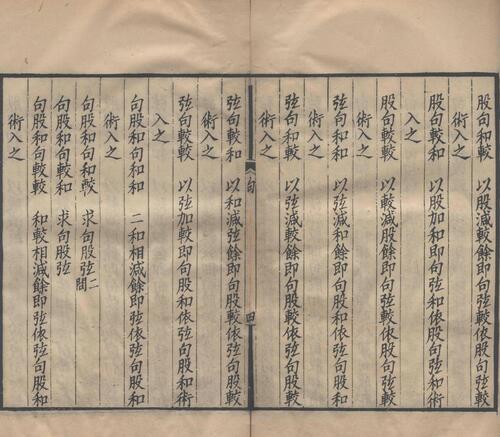 股句和較　以股減較餘即句弦較依股句弦較
術入之
股句較和　以股加和即句弦和依股句弦和術
入之
股句較較　以較減股餘即句弦較依股句弦較
術入之
弦句和和　以弦減和餘即句股和依弦句股和
術入之
弦句和較　以弦減較餘即句股較依弦句股較
術入之
句　四
弦句較和　以和減弦餘即句股較依弦句股較
術入之
弦句較較　以弦加較即句股和依弦句股和術
入之
句股和句和和　二和相減餘即弦依弦句股和
術入之
句股和句和較　求句股弦二問
句股和句較和　求句股弦
句股和句較較　和較相減餘即弦依弦句股和
術入之